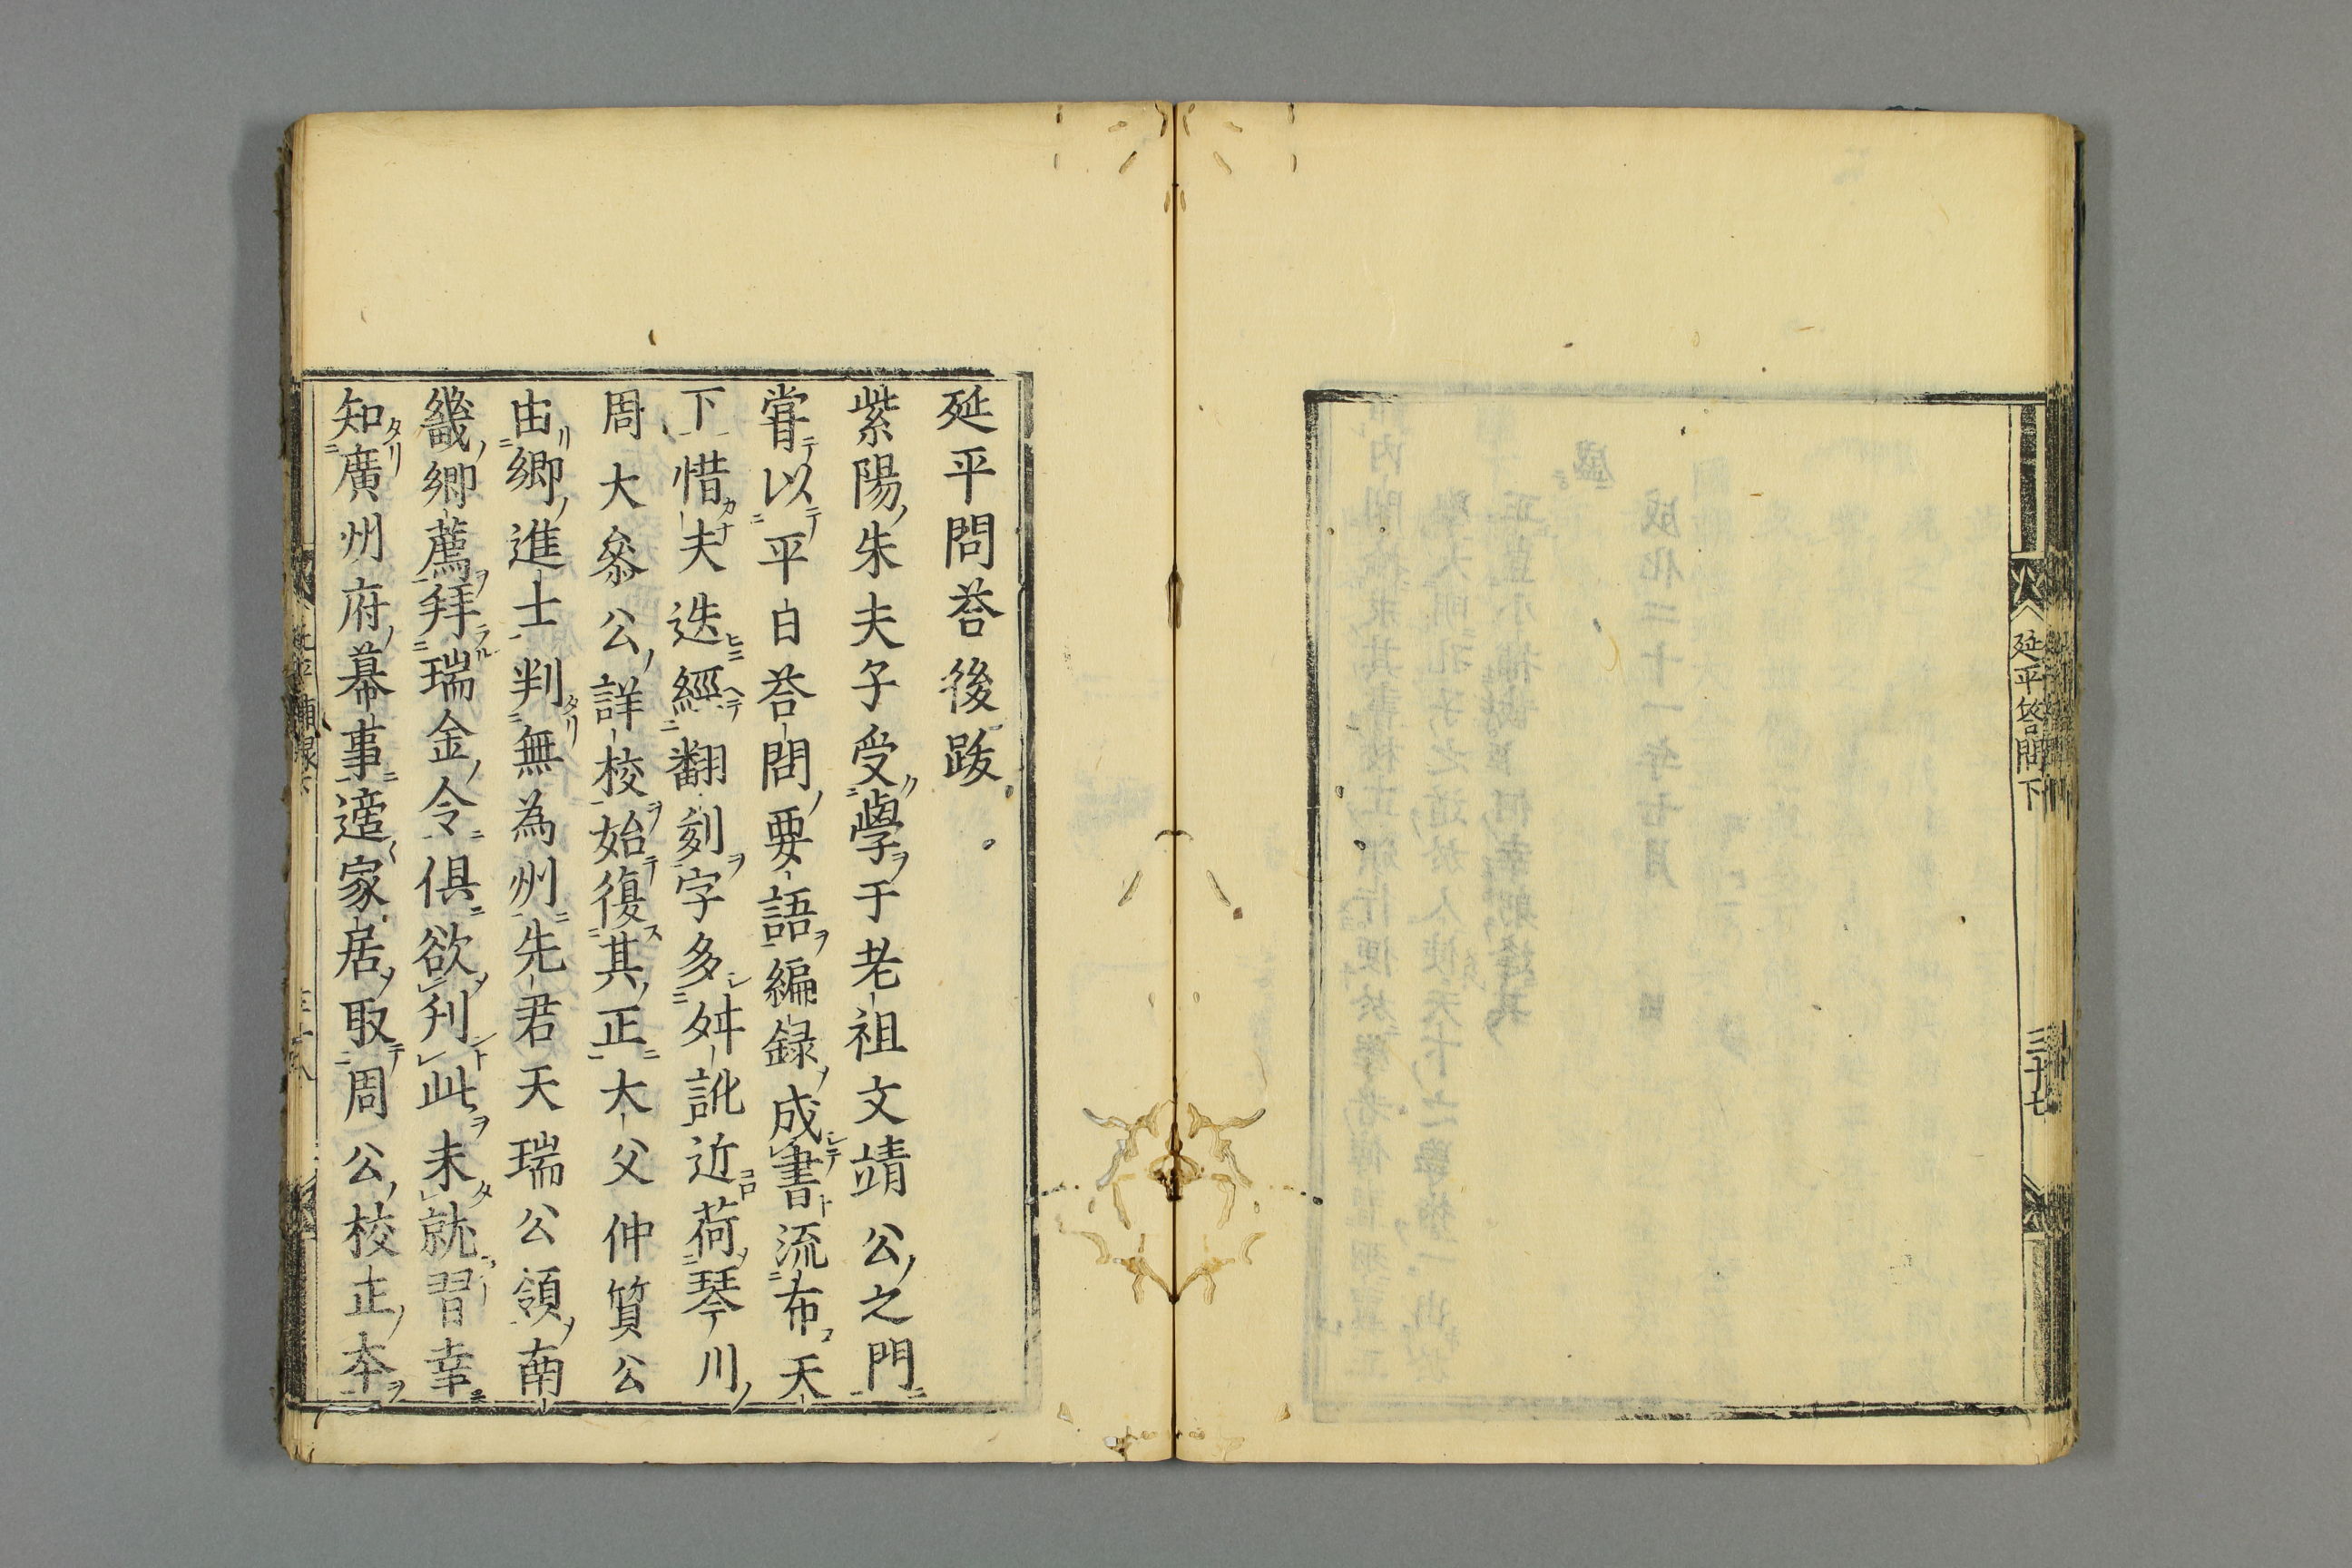 延平答問下
三十七
延平問荅後跋
紫陽朱夫子受學于老祖文靖公之門
嘗以平白荅問要語編録成書流布天
下惜夫迭經翻刻字多舛訛近荷琴川
周大叅公詳校始復其正大父仲質公
由鄉進士判無為州先君天瑞公領南
畿鄉薦拜瑞金令俱欲刋此未就習幸
知廣州府幕事適家居取周公校正夲